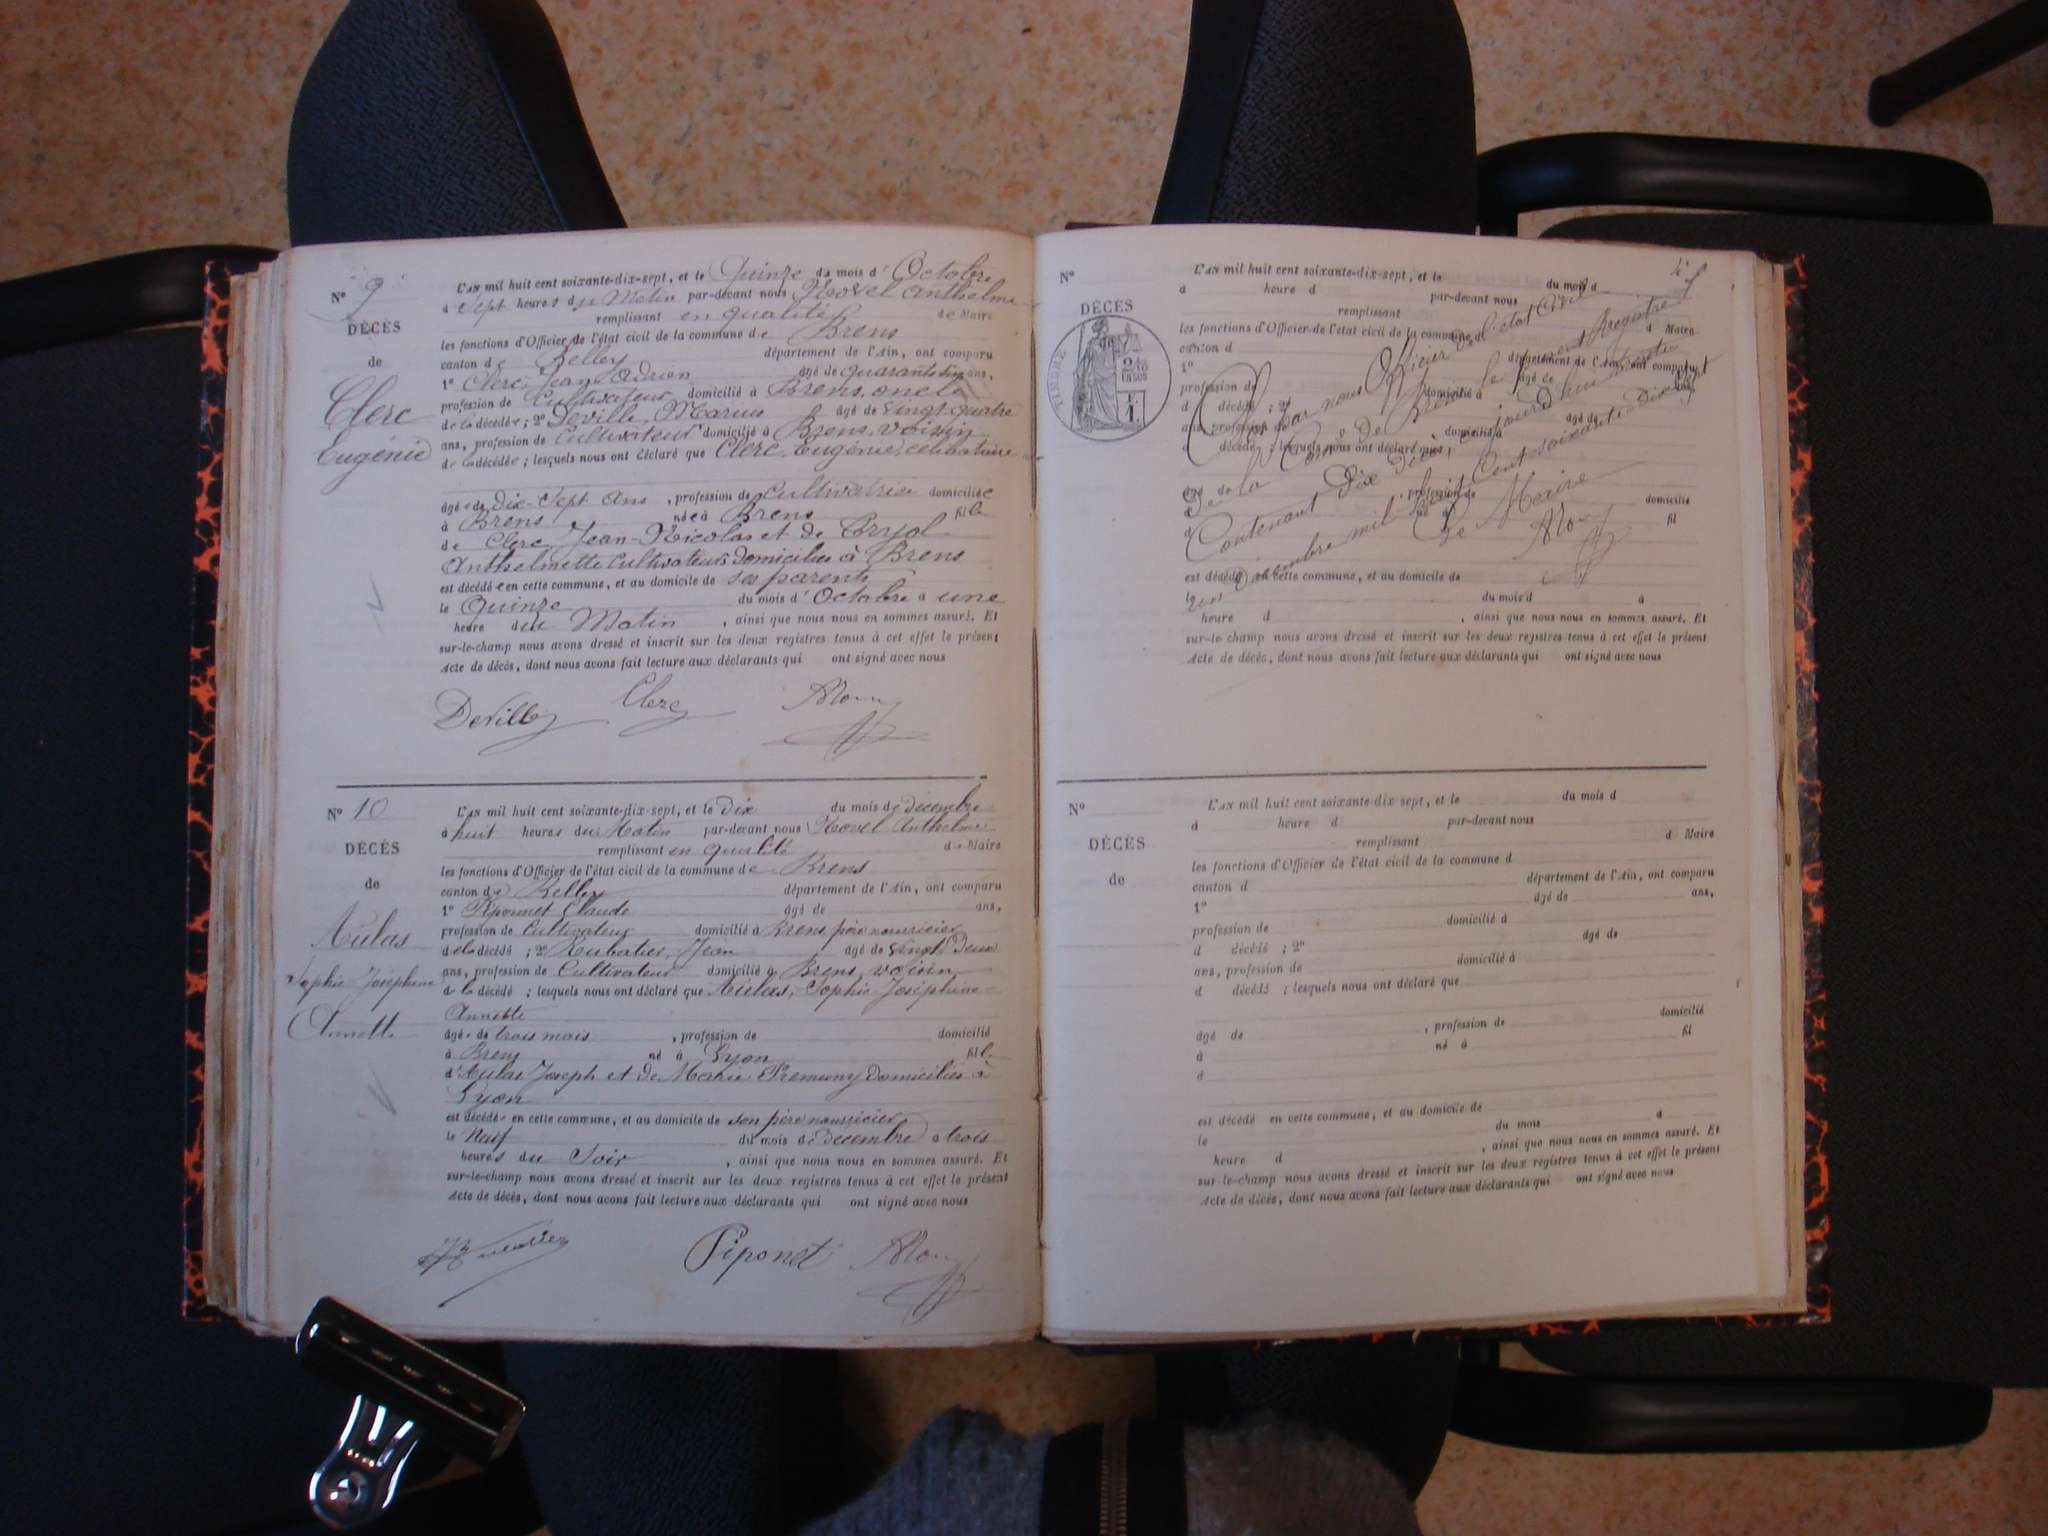 N° 9
DÉCÈS
de
Clerc
Eugénie
L'AN mil huit cent soixante-dix-sept, et le Quinze du mois d'Octobre
à Sept heures du Matin par-devant nous Hovel Anthelme
remplissant en qualité de Maire
les fonctions d'Officier de l'état civil de la commune de Brens
canton de Belley département de l'Ain, ont comparu
1° Clerc, Jean Adrien âgé de quarante six ans,
profession de Cultivateur domicilié à Brens, oncle
de la décédée ; 2° Deville, Marius âgé de vingt quatre
ans, profession de Cultivateur domicilié à Brens, voisin
de la décédée ; lesquels nous ont déclaré que Clerc, Eugénie, célibataire
âgée de Dix-Sept Ans, profession de Cultivatrice domiciliée
à Brens née à Brens fille
de Clerc Jean-Nicolas et de
Anthelmette Cultivateurs Domiciliés à Brens
est décédée en cette commune, et au domicile de ses parents
le Quinze du mois d'Octobre à une
heure du Matin, ainsi que nous nous en sommes assuré. Et
sur-le-champ nous avons dressé et inscrit sur les deux registres tenus à cet effet le présent
Acte de décès, dont nous avons fait lecture aux déclarants qui ont signé avec nous
Deville Clerc
N° 10
DÉCÈS
de
Aulas
Sophie Joséphine
Annette
L'AN mil huit cent soixante-dix-sept, et le Dix du mois de décembre
à huit heures du Matin par-devant nous Hovel Anthelme
remplissant en qualité de Maire
les fonctions d'Officier de l'état civil de la commune de Brens
canton de Belley département de l'Ain, ont comparu
1° Piponnet Claude âgé de ans,
profession de Cultivateur domicilié à Brens, père nourricier
de la décédé ; 2° Rubatier, Jean âgé de vingt Deux
ans, profession de Cultivateur domicilié à Brens, voisin
de la décédé ; lesquels nous ont déclaré que Aulas, Sophie Joséphine
Annette
âgée de trois mois, profession de domicilié
à Brens né à Lyon fille
d'Aulas Joseph et de Marie domiciliés à
Lyon
est décédée en cette commune, et au domicile de son père nourricier
le Neuf du mois de décembre à trois
heures du Soir, ainsi que nous nous en sommes assuré. Et
sur-le-champ nous avons dressé et inscrit sur les deux registres tenus à cet effet le présent
Acte de décès, dont nous avons fait lecture aux déclarants qui ont signé avec nous
Piponet
N°
DÉCÈS
de
TIMBRE
L'AN mil huit cent soixante-dix-sept, et le du mois d
à heure d par-devant nous
remplissant d Maire
les fonctions d'Officier de l'état civil de la commune d
canton d département de l'Ain, ont comparu
1° âgé de ans,
profession de domicilié à
d décédé ; 2° âgé de
ans, profession de domicilié à
d décédé ; lesquels nous ont déclaré que
âgé de , profession de domicilié
à né à fil
d
est décédé en cette commune, et au domicile de
le du mois d à
heure d , ainsi que nous nous en sommes assuré. Et
sur-le-champ nous avons dressé et inscrit sur les deux registres tenus à cet effet le présent
Acte de décès, dont nous avons fait lecture aux déclarants qui ont signé avec nous
Clos par nous Officier de l'état Civil
de la Cne de Brens le présent Registre
Contenant Dix Décès, aujourd'hui trente
un Décembre mil huit Cent soixante Dix Sept
Le Maire
N°
DÉCÈS
de
L'AN mil huit cent soixante-dix sept, et le du mois d
à heure d par-devant nous
remplissant d Maire
les fonctions d'Officier de l'état civil de la commune d
canton d département de l'Ain, ont comparu
1° âgé de ans,
profession de domicilié à
d décédé ; 2° âgé de
ans, profession de domicilié à
d décédé ; lesquels nous ont déclaré que
âgé de , profession de domicilié
à né à
d
est décédé en cette commune, et au domicile de
le du mois à
heure d , ainsi que nous nous en sommes assuré. Et
sur-le-champ nous avons dressé et inscrit sur les deux registres tenus à cet effet le présent
Acte de décès, dont nous avons fait lecture aux déclarants qui ont signé avec nous